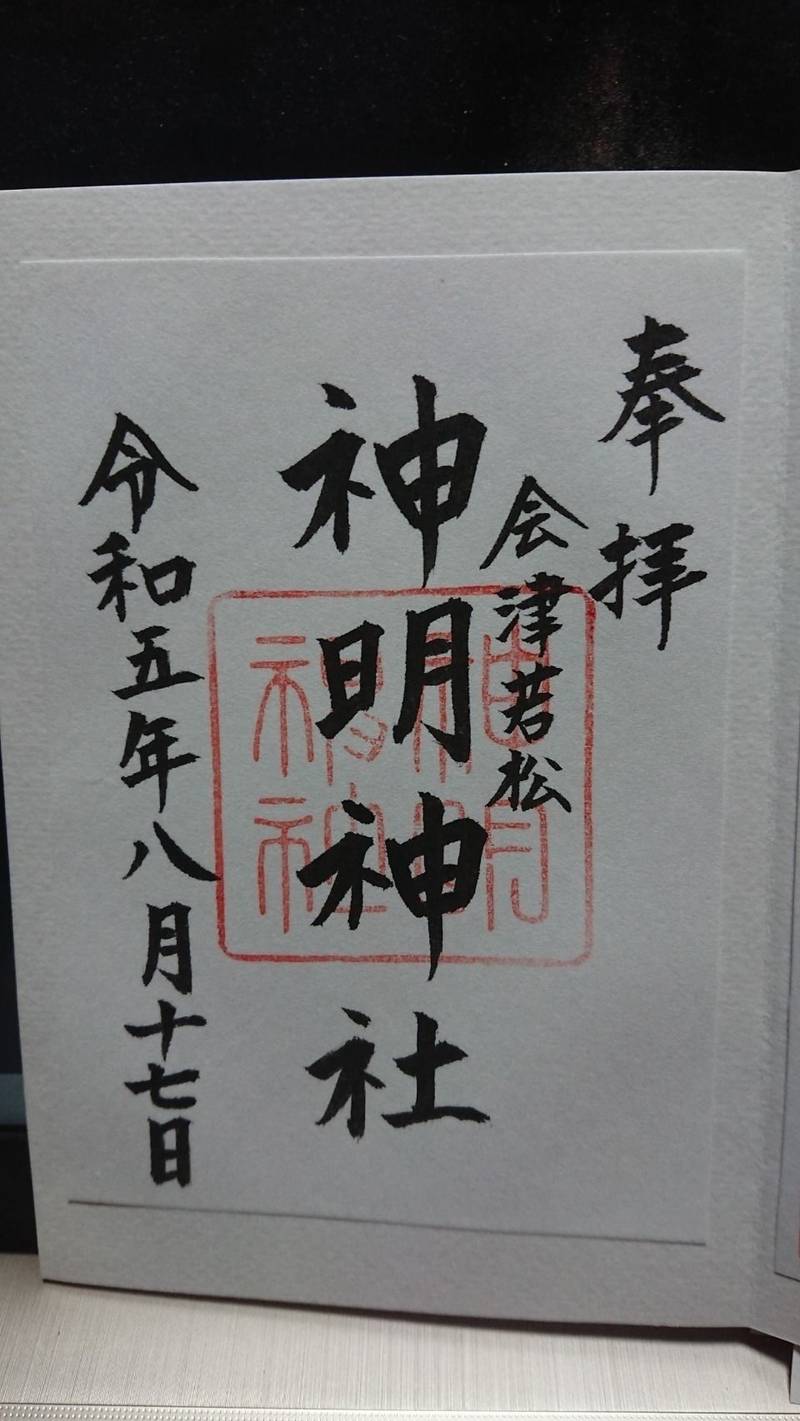 奉拝
会津若松
神明神社
令和五年八月十七日
神明
神社